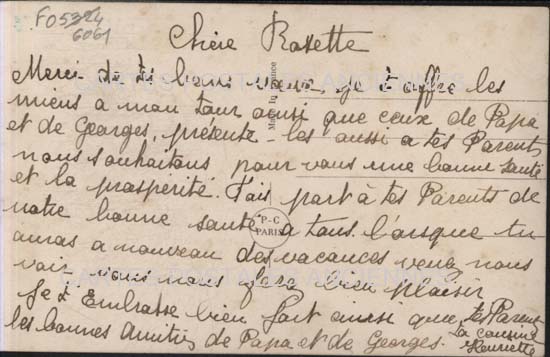 F05324
6061
Chère Rosette
Merci de tes bons vœux, je t'offre les
miens a mon tour ainsi que ceux de Papa
et de Georges, présente-les aussi a tes Parent
nous souhaitons pour vous une bonne santé
et la prospérité. Fais part à tes Parents de
notre bonne santé a tous. l'orsque tu
auras a nouveau des vacances venez nous
voir vous nous fera bien plaisir
Je t'Embrasse bien fort ainsi que tes Parent
les bonnes Amitiés de Papa et de Georges.
ta cousine
Henriette
Made in France
P-C
PARIS
CARTES POSTALES ANCIENNES
CARTES POSTALES ANCIENNES